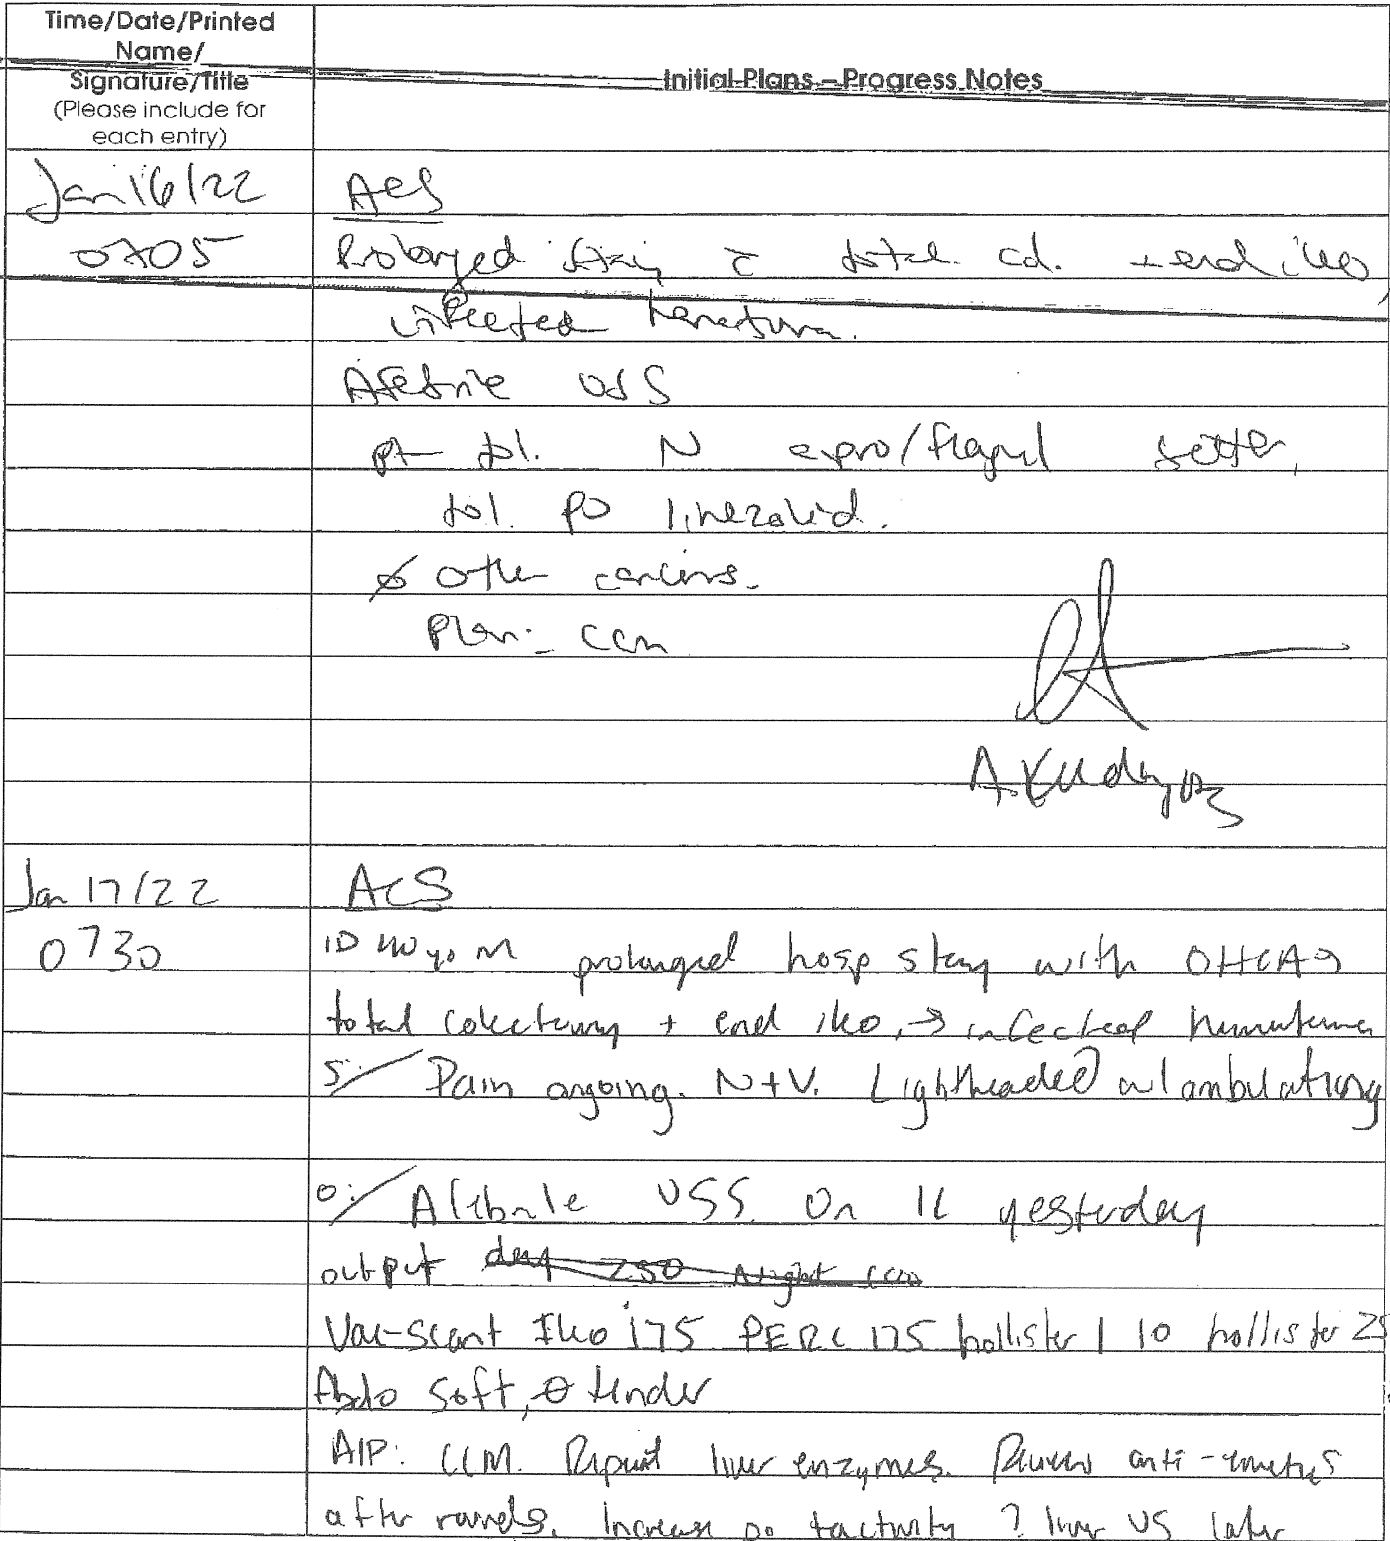 Time/Date/Printed
Name/
Signature/Title
(Please include for
each entry)
Initial Plans – Progress Notes
Jan 16/22
ACS
0705
Prolonged stay c̄ total col. + end ileo,
infected hematoma.
Afebrile VSS
pt tol. IV cipro/flagyl better,
tol. po linezolid.
∅ other concerns.
Plan: CCM
Jan 17/22
ACS
0730
ID 40 yo M prolonged hosp stay with OHCA →
total colectomy + end ileo, → infected hematoma
S:/ Pain ongoing. N+V. Lightheaded w/ ambulating
O:/ Afebrile VSS. On 1L yesterday
output day 250 Night
Vac-scant Ileo 175 PERC 175 hollister 1 10 hollister 2 5
Abdo soft, ⊖ tender
A/P: CCM. Repeat liver enzymes. Review anti-emetics
after rounds. Increase po + activity ? liver US later